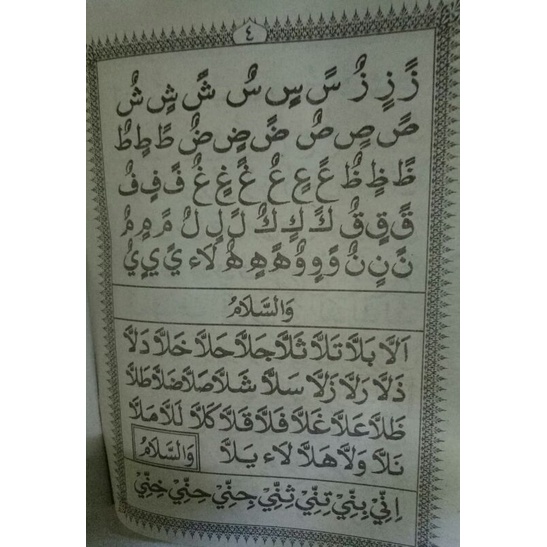 ٤
زً زٍ زٌ سً سٍ سٌ شً شٍ شٌ
صً صٍ صٌ ضً ضٍ ضٌ طً طٍ طٌ
ظً ظٍ ظٌ عً عٍ عٌ غً غٍ غٌ فً فٍ فٌ
قً قٍ قٌ كً كٍ كٌ لً لٍ لٌ مً مٍ مٌ
نً نٍ نٌ وً وٍ وٌ هً هٍ هٌ لَاء يً يٍ يٌ
وَالسَّلَامُ
اَلَّا بَلَّا تَلَّا ثَلَّا جَلَّا حَلَّا خَلَّا دَلَّا
ذَلَّا رَلَّا زَلَّا سَلَّا شَلَّا صَلَّا ضَلَّا طَلَّا
ظَلَّا عَلَّا غَلَّا فَلَّا قَلَّا كَلَّا لَلَّا مَلَّا
نَلَّا وَلَّا هَلَّا لَاء يَلَّا وَالسَّلَامُ
اِنِّيْ بِنِّيْ تِنِّيْ ثِنِّيْ جِنِّيْ حِنِّيْ خِنِّيْ